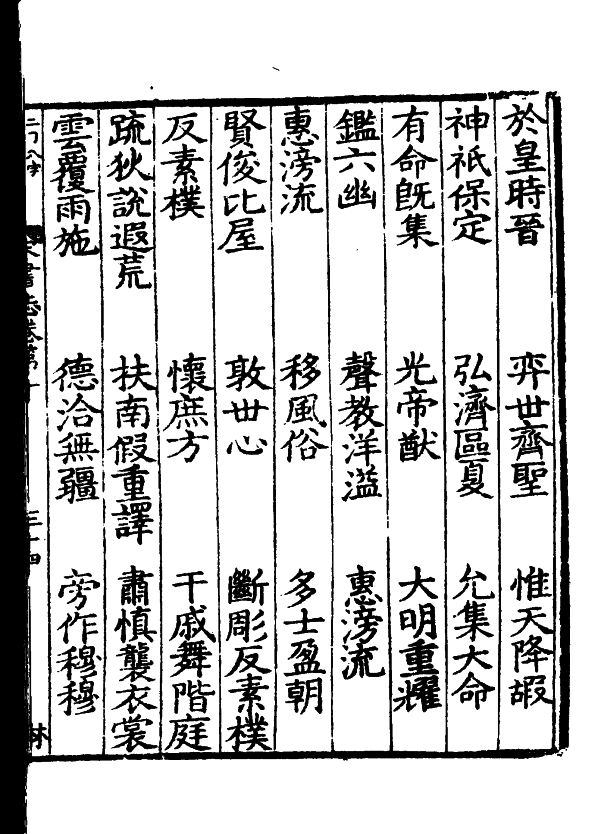 於皇時晉 弈世齊聖 惟天降嘏
神祇保定 弘濟區夏 允集大命
有命旣集 光帝猷 大明重耀
鑑六幽 聲教洋溢 惠滂流
惠滂流 移風俗 多士盈朝
賢俊比屋 敦世心 斷彫反素樸
反素樸 懷庶方 干戚舞階庭
疏狄說遐荒 扶南假重譯 肅慎襲衣裳
雲覆雨施 德洽無疆 旁作穆穆
書志卷第十
三十四
林